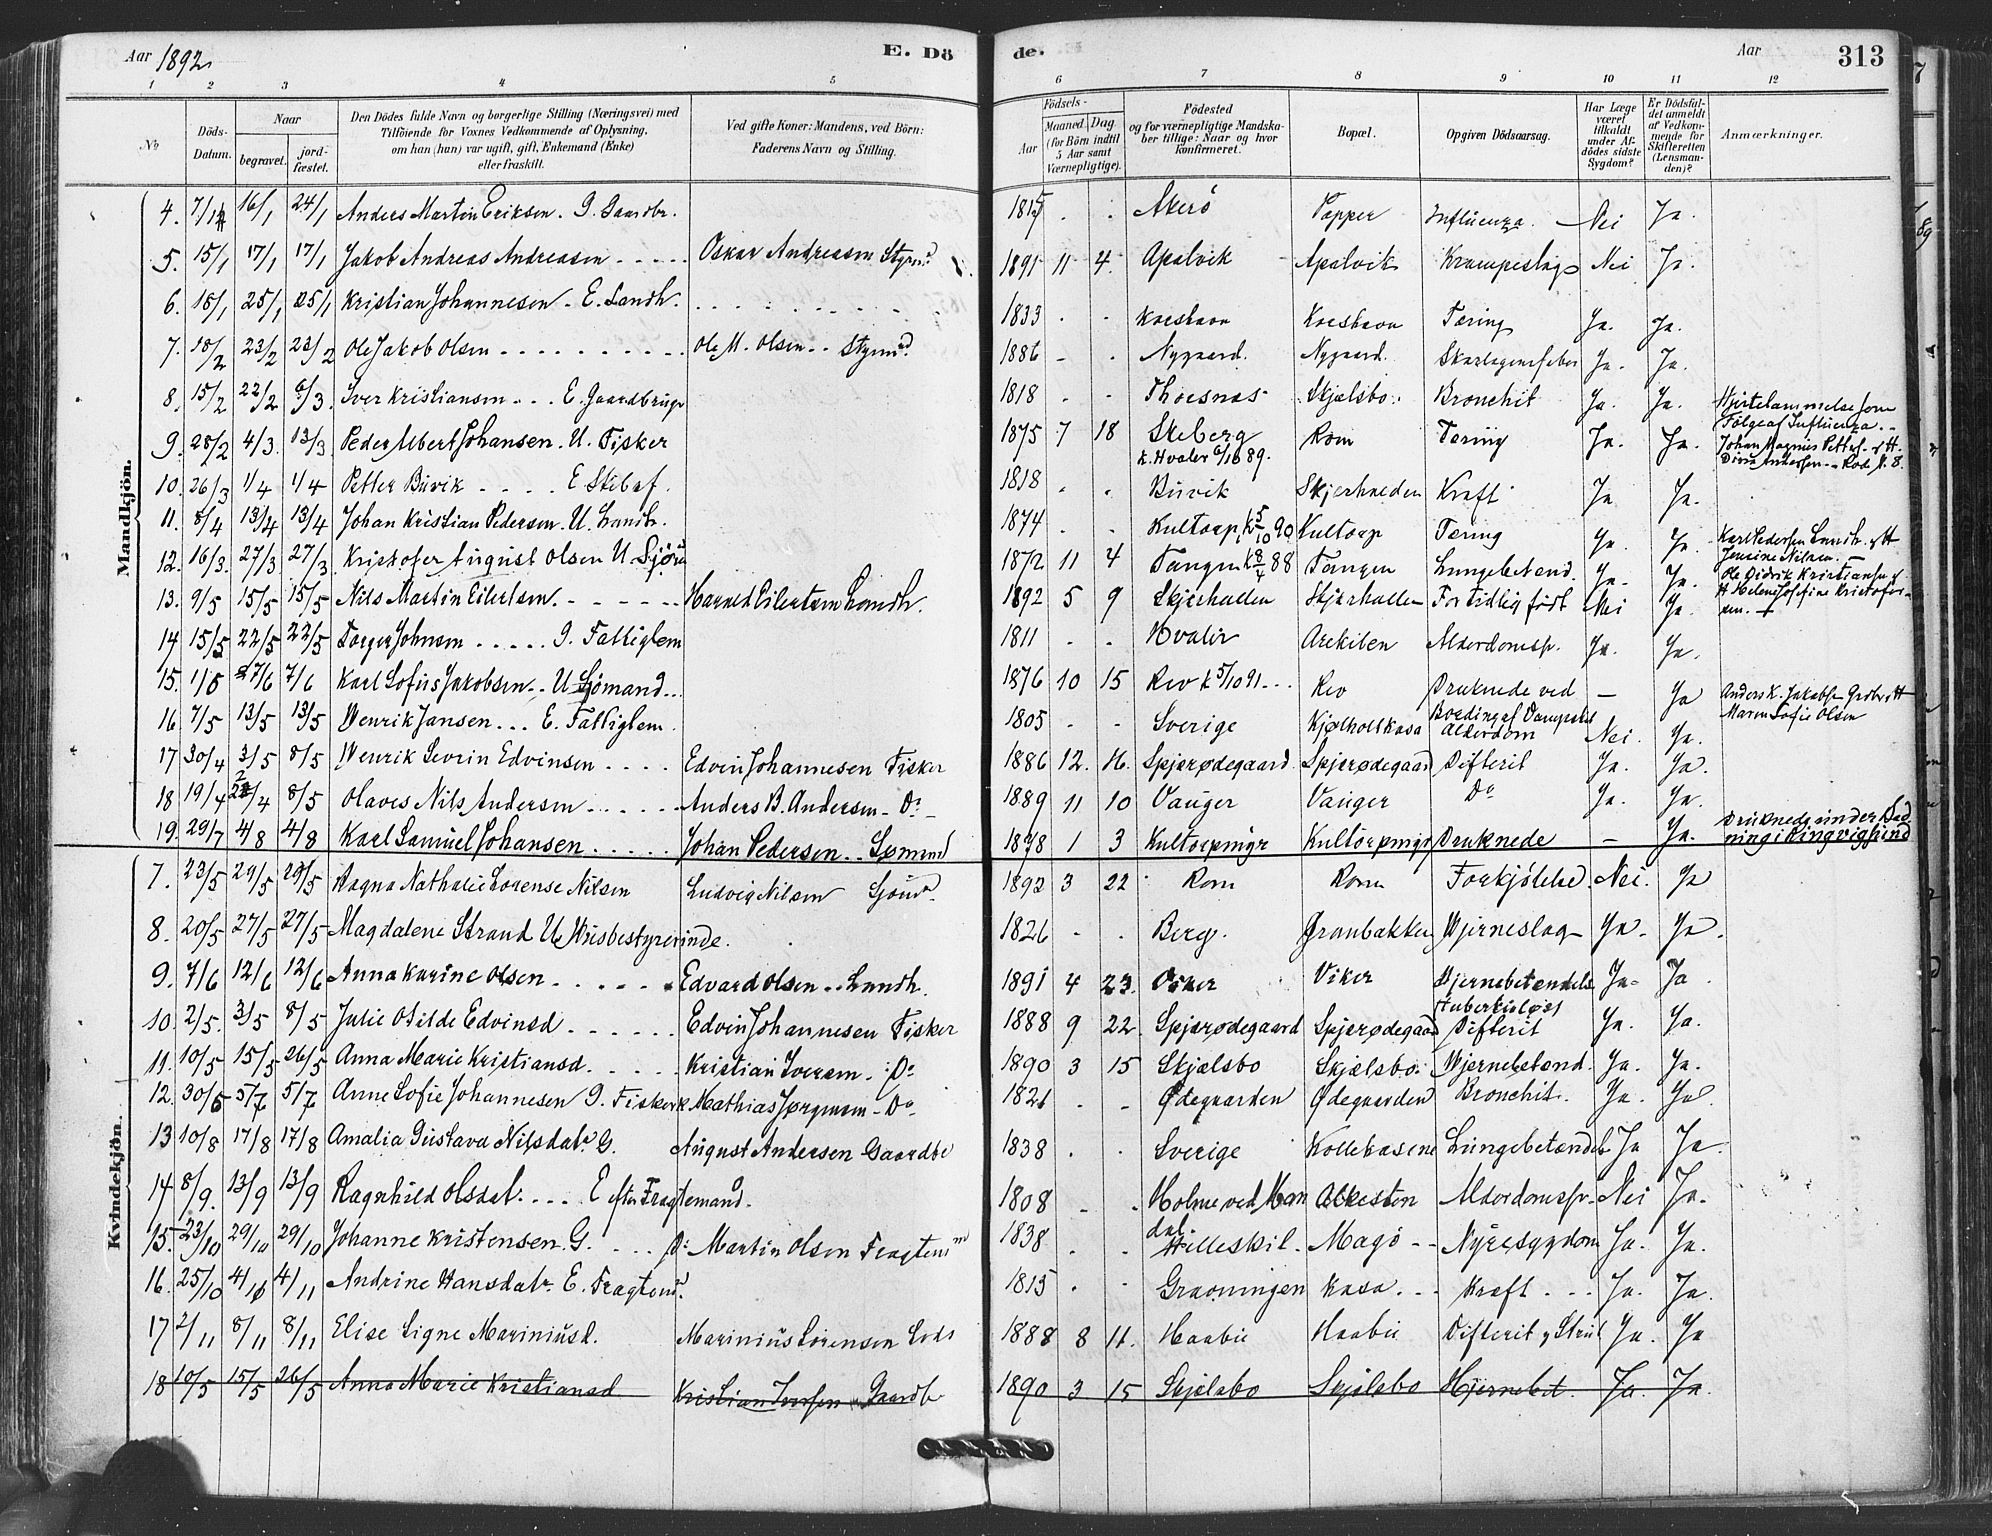 Aar 1892 E. Dö
de. Aar 313
1 2 3 4 5 6 7 8 9 10 11 12
No Döds-Datum. Naar begravet. jord-fæstet. Den Dödes fulde Navn og borgerlige Stilling (Næringsvei) med Tilföiende for Voxnes Vedkommende af Oplysning, om han (hun) var ugift, gift, Enkemand (Enke) eller fraskilt. Ved gifte Koner: Mandens, ved Börn: Faderens Navn og Stilling.
Födsels- Aar Maaned Dag (for Börn indtil 5 Aar samt Værnepligtige). Födested og for værnepligtige Mandskaber tillige: Naar og hvor konfirmeret. Bopæl. Opgiven Dödsaarsag. Har Læge været tilkaldt under Afdödes sidste Sygdom? Er Dödsfaldet anmeldt af Vedkommende for Skifteretten (Lensmanden)? Anmærkninger.
Mandkjön.
4. 7/1 16/1 24/1 Anders Martin Eriksen. G. Gaardbr. 1815 . . Akerö Papper Influenza. Nei Ja.
5. 15/1 17/1 17/1 Jakob Andreas Andreasen Oskar Andreasen Styrmd 1891 11 4. Apalvik Apalvik Krampeslag Nei Ja.
6. 18/1 25/1 25/1 Kristian Johannesen. E. Landh. 1833 . . Koeshavn Koeshavn Tæring Ja. Ja.
7. 10/2 23/2 23/2 Ole Jakob Olsen Ole M. Olsen Styrmd. 1886 - . Nygaard. Nygaard. Skarlagensfeber Ja. Ja.
8. 15/2 22/2 6/3 Iver Kristiansen E. Gaardbruger 1818 . . Thoesnæs Skjælsbo. Bronchit Ja. Ja. Hjertelammelse som Fölge af Influenza.
9. 28/2 4/3 13/3 Peder Albert Johansen. U. Fisker 1875 7 18 Skeberg k. Hvaler 6/10 89. Rom Tæring Ja. Ja. Johan Magnus Petters. og H. Dina Andersen
10. 26/3 1/4 1/4 Petter Buvik E Skibsf. 1818 . . Buvik Skjærhælden Kræft Ja Ja.
11. 8/4 13/4 13/4 Johan Kristian Pedersen. U. Landh. 1874 . . Kultorp, k 5/10 90 Kultorp Tæring Ja. Ja. Karl Pedersen Landh. og H Jensine Nilsen.
12. 16/3. 27/3 27/3 Kristofer August Olsen U Sjömd 1872 11 4 Tangen k 8/4 88 Tangen Lungebetænd. Ja. Ja. Ole Didrik Kristiansen og H Helene Josefine Kristofersen.
13. 9/5 15/5 15/5 Nils Martin Eilertsen. Harned Eilertsen Landh. 1892 5 9 Skjærhallen Skjærhallen For tidlig födt Nei Ja.
14 15/5 22/5 22/5 Torger Johnsen G. Fattiglem 1811 . . Hvaler Arekilen Alderdomssv. Ja. Ja.
15. 7/6 7/6 Karl Sofus Jakobsen U Sjömand 1876 10 15 Rev k 5/10 91 Rev Druknede ved Bording af Dampskib - Ja Anders K. Jakobsen Gbr. H Maren Sofie Olsen
16 7/5 13/5 13/5 Henrik Jansen E. Fattiglem. 1805 - . Sverige Kjölholtkasa Alderdom Nei. Ja.
17 30/4 3/5 8/5 Henrik Sevrin Edvinsen Edvin Johannesen Fisker 1886 12. 16. Spjærødegaard. Spjærødegaard Difterit Ja. Ja.
18 19/4 22/4 8/5 Olaves Nils Andersen Anders B. Andersen Do 1889 11 10 Vauger Vauger Do Ja. Ja.
19. 29/7 4/8 4/8 Karl Samuel Johansen Johan Pedersen Sømand 1878 1 3 Kultorpmyr Kultorpmyr Druknede - Ja. Druknede under Badning i Ringvigsund
Kvindekjön.
7. 23/5 29/5 29/5 Ragna Nathalie Lorense Nilsen Ludvig Nilsen Sjömd. 1892 3 22 Rom Rom Forkjölelse. Nei. Ja
8. 20/5 27/5 27/5 Magdalene Strand U Husbestyrerinde. 1826 - . Berg. Granbakken Hjerneslag Ja. Ja.
9. 7/6 12/6 12/6 Anna Karine Olsen Edvard Olsen Landh. 1891 4 23. Viker Viker Hjernebetændelse tuberkuløst Ja. Ja.
10. 2/5. 3/5 8/5 Julie Otilde Edvinsd Edvin Johannesen Fisker 1888 9 22 Spjærødegaard Spjærødegaard Difterit Ja. Ja.
11. 10/5 15/5 26/5 Anna Marie Kristiansd. Kristian Iversen. Do 1890 3 15 Skjælsbo Skjælsbo. Hjernebetænd. Ja. Ja.
12. 30/6 5/7 5/7 Anne Sofie Johannesen G. Fisker Mathias Jørgensen Do 1821 - . Ødegaarden Ødegaarden Bronchit. Ja. Ja.
13 10/8 17/8 17/8 Amalia Gustava Nilsdatr. G. August Andersen Gaardbr 1838 . . Sverige Kollebasene Lungebetændelse Ja Ja.
14 8/9. 13/9 13/9 Ragnhild Olsdat. E efter Fragtemand. 1808 - . Holme ved Mandal. Alkesten Alderdomssv. Nei Ja.
15. 23/10 29/10 29/10 Johanne Kristensen. G. Martin Olsen Fragtemd 1838 . . Hilleskil. Magö Nyresygdom Ja. Ja.
16. 25/10 4/11 4/11 Andrine Hansdatr. E. Fragtemd. 1815 . . Graaningen Kasa Kræft Ja. Ja.
17 2/11 8/11 8/11 Elise Signe Mariniusd. Marinius Sørensen Lods 1888 8 11. Haabu Haabu Difterit, Strub Ja. Ja
18 10/5 15/5 26/5 Anna Marie Kristiansd Kristian Iversen Gaardb 1890 3 15 Skjælsbo Skjælsbo Hjernebet. Ja. Ja.